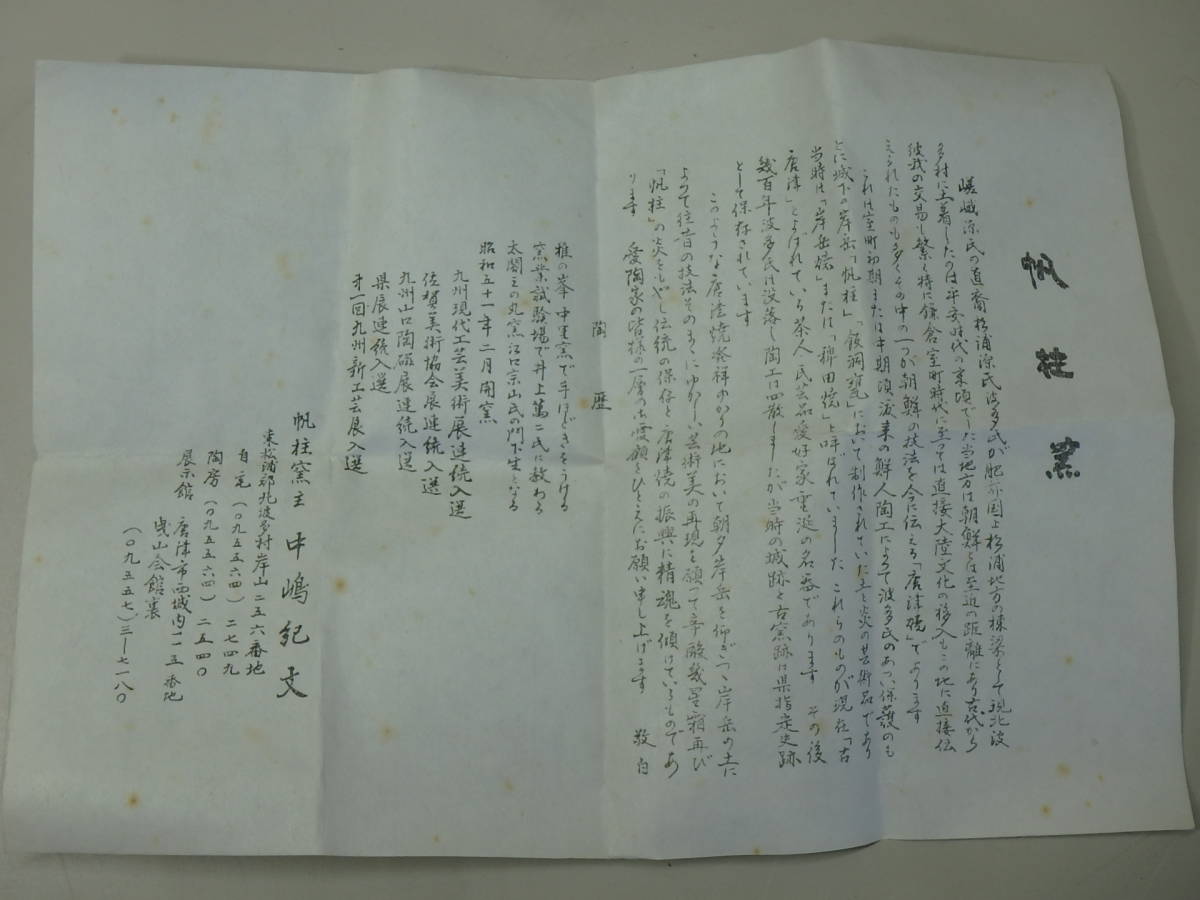 帆柱窯
嵯峨源氏の直裔松浦源氏波多氏が肥前国上松浦地方の棟梁として現北波
多村に土着したのは平安時代の末頃でした当地方は朝鮮とは至近の距離にあり古代から
彼我の交易も繁く特に鎌倉室町時代に至っては直接大陸文化の移入もこの地に直接伝
えられたものも多くその中の一つが朝鮮の技法を今に伝える「唐津焼」であります
これは室町初期または中期頃渡来の鮮人陶工によって波多氏のあつい保護のも
とに城下の岸岳「帆柱」「飯洞甕」において制作されていた土と炎の芸術品であり
当時は「岸岳焼」または「稗田焼」と呼ばれていました これらのものが現在「古
唐津」とよばれている茶人民芸品愛好家垂涎の名器であります その後
幾百年波多氏は没落し陶工は四散しましたが当時の城跡と古窯跡は県指定史跡
として保存されています
このような唐津焼発祥ゆかりの地において朝夕岸岳を仰ぎつつ岸岳の土に
よって往昔の技法そのままにゆかしい芸術美の再現を願って辛酸幾星霜再び
「帆柱」の炎をもやし伝統の保存と唐津焼の振興に精魂を傾けているものであ
ります 愛陶家の皆様の一層の御愛顧をひとえにお願い申し上げます 敬白
陶歴
椎の峯中里窯で手ほどきをうける
窯業試験場で井上萬二氏に教わる
太閤三の丸窯江口宗山氏の門下生となる
昭和五十一年二月開窯
九州現代工芸美術展連続入選
佐賀美術協会展連続入選
九州山口陶磁展連続入選
県展連続入選
才一回九州新工芸展入選
帆柱窯主 中嶋紀文
東松浦郡北波多村岸山二五六番地
自宅(〇九五五六四)二七四九
陶房(〇九五五六四)二五四〇
展示館 唐津市西城内一ー五番地
曳山会館裏
(〇九五五七)三ー七一八〇